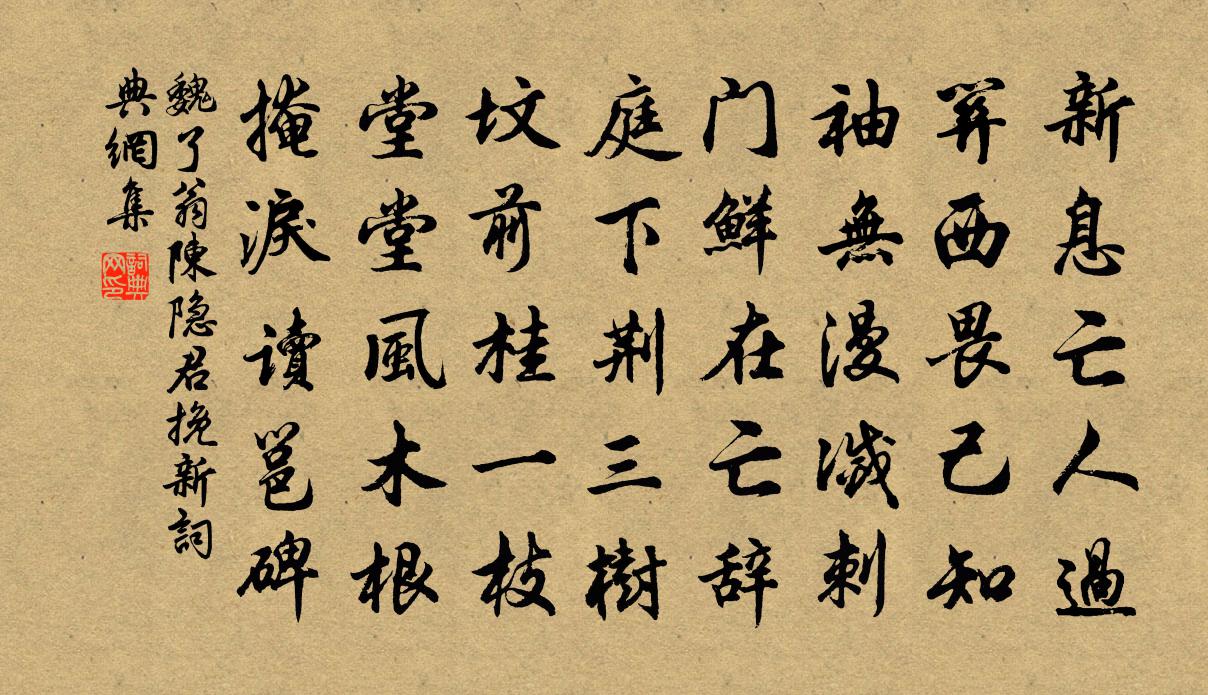 新息亡人過
关西畏己知
袖無漫滅刺
门鮮在亡辞
庭下荆三樹
坟前桂一枝
堂堂風木根
掩淚讀邕碑
魏了翁陳隐君挽新詞
典網集
詞典网印